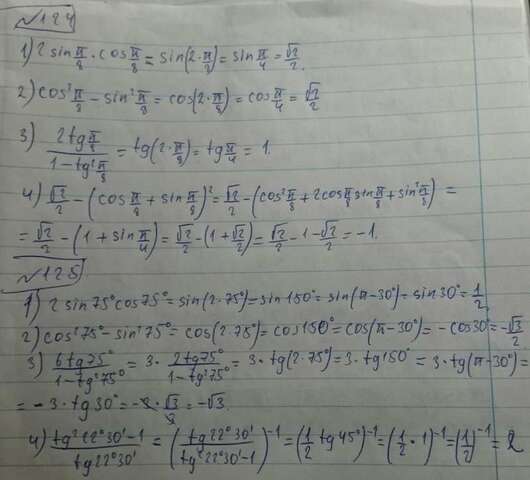 №124
1) 2 sin π/8 · cos π/8 = sin(2·π/8) = sin π/4 = √2/2.
2) cos² π/8 − sin² π/8 = cos(2·π/8) = cos π/4 = √2/2
3) 2tg π/8 / (1−tg² π/8) = tg(2·π/8) = tg π/4 = 1.
4) √2/2 − (cos π/8 + sin π/8)² = √2/2 − (cos² π/8 + 2cos π/8 sin π/8 + sin² π/8) =
= √2/2 − (1 + sin π/4) = √2/2 − (1 + √2/2) = √2/2 − 1 − √2/2 = −1.
№125
1) 2 sin75°cos75° = sin(2·75°) = sin150° = sin(π−30°) = sin30° = 1/2
2) cos²75° − sin²75° = cos(2·75°) = cos150° = cos(π−30°) = −cos30° = −√3/2
3) 6tg75° / (1−tg²75°) = 3 · 2tg75° / (1−tg²75°) = 3·tg(2·75°) = 3·tg150° = 3·tg(π−30°) =
= −3·tg30° = −3·√3/3 = −√3.
4) (tg²22°30′−1) / tg22°30′ = (tg22°30′ / (tg²22°30′−1))⁻¹ = (1/2 tg45°)⁻¹ = (1/2 · 1)⁻¹ = (1/2)⁻¹ = 2